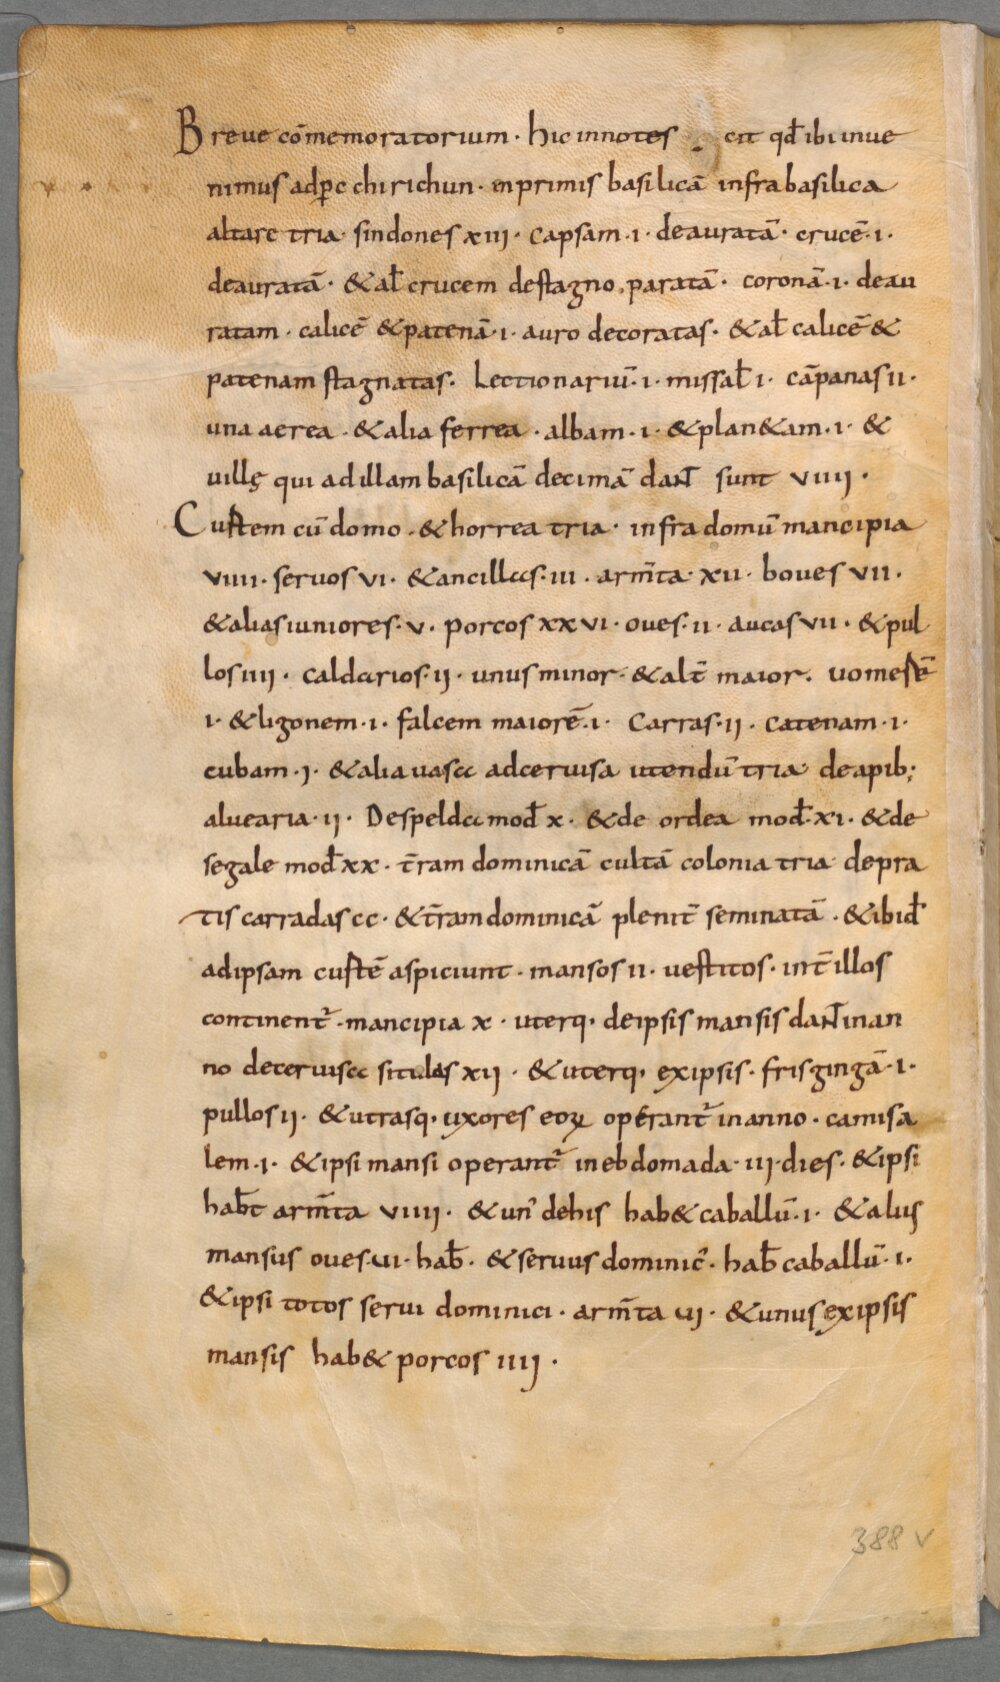 Breue cōmemoratorium · hic innotes cit qđ ibi inue
nimus ad ꝑc chirichun · inprimis basilicā infra basilica
altare tria · sindones xiii · capsam · i · deauratā · crucē · i ·
deauratā · & ał crucem de stagno paratā · coronā · i · deau
ratam · calicē & patenā · i · auro decoratas · & ał calicē &
patenam stagnatas · Lectionariū · i · missał i · cāpanas ii ·
una aerea · & alia ferrea · albam · i · & plan&am · i · &
uillę qui ad illam basilicā decimā dant̄ sunt viiii ·
Custem cū domo · & horrea tria · infra domū mancipia
viiii · seruos vi · & ancillas · iii · arm̄ta · xii · boues vii ·
& alias iuniores · v · porcos xxvi · oues · ii · aucas vii · & pul
los iiii · caldarios · ii · unus minor · & alt̄ maior · uomerē
i · & ligonem · i · falcem maiorē · i · Carras · ii · catenam · i ·
cubam · i · & alia uasa ad ceruisa utendū tria · de apib;
aluearia · ii · De spelda mođ x · & de ordea mođ · xi · & de
segale mođ xx · t̄ram dominicā cultā colonia tria · de pra
tis carradas cc · & t̄ram dominicā plenit̄ seminatā · & ibiđ
ad ipsam custē aspiciunt · mansos ii · uestitos · int̄ illos
continent᷑ · mancipia x · uterq· de ipsis mansis dant̄ in an
no de ceruisa situlas xii · & uterq· ex ipsis · frisgingā · i ·
pullos ii · & utrasq· uxores eoꝝ operant᷑ in anno · camisa
lem · i · & ipsi mansi operant᷑ in ebdomada · iii · dies · & ipsi
hab̄t arm̄ta viiii · & un᷒ de his hab& caballū · i · & alius
mansus oues · vi · hab̄ · & seruus dominic᷒ · hab̄ caballū · i ·
& ipsi totos serui dominici · arm̄ta vi · & unus ex ipsis
mansis hab& porcos iiii ·
388 v